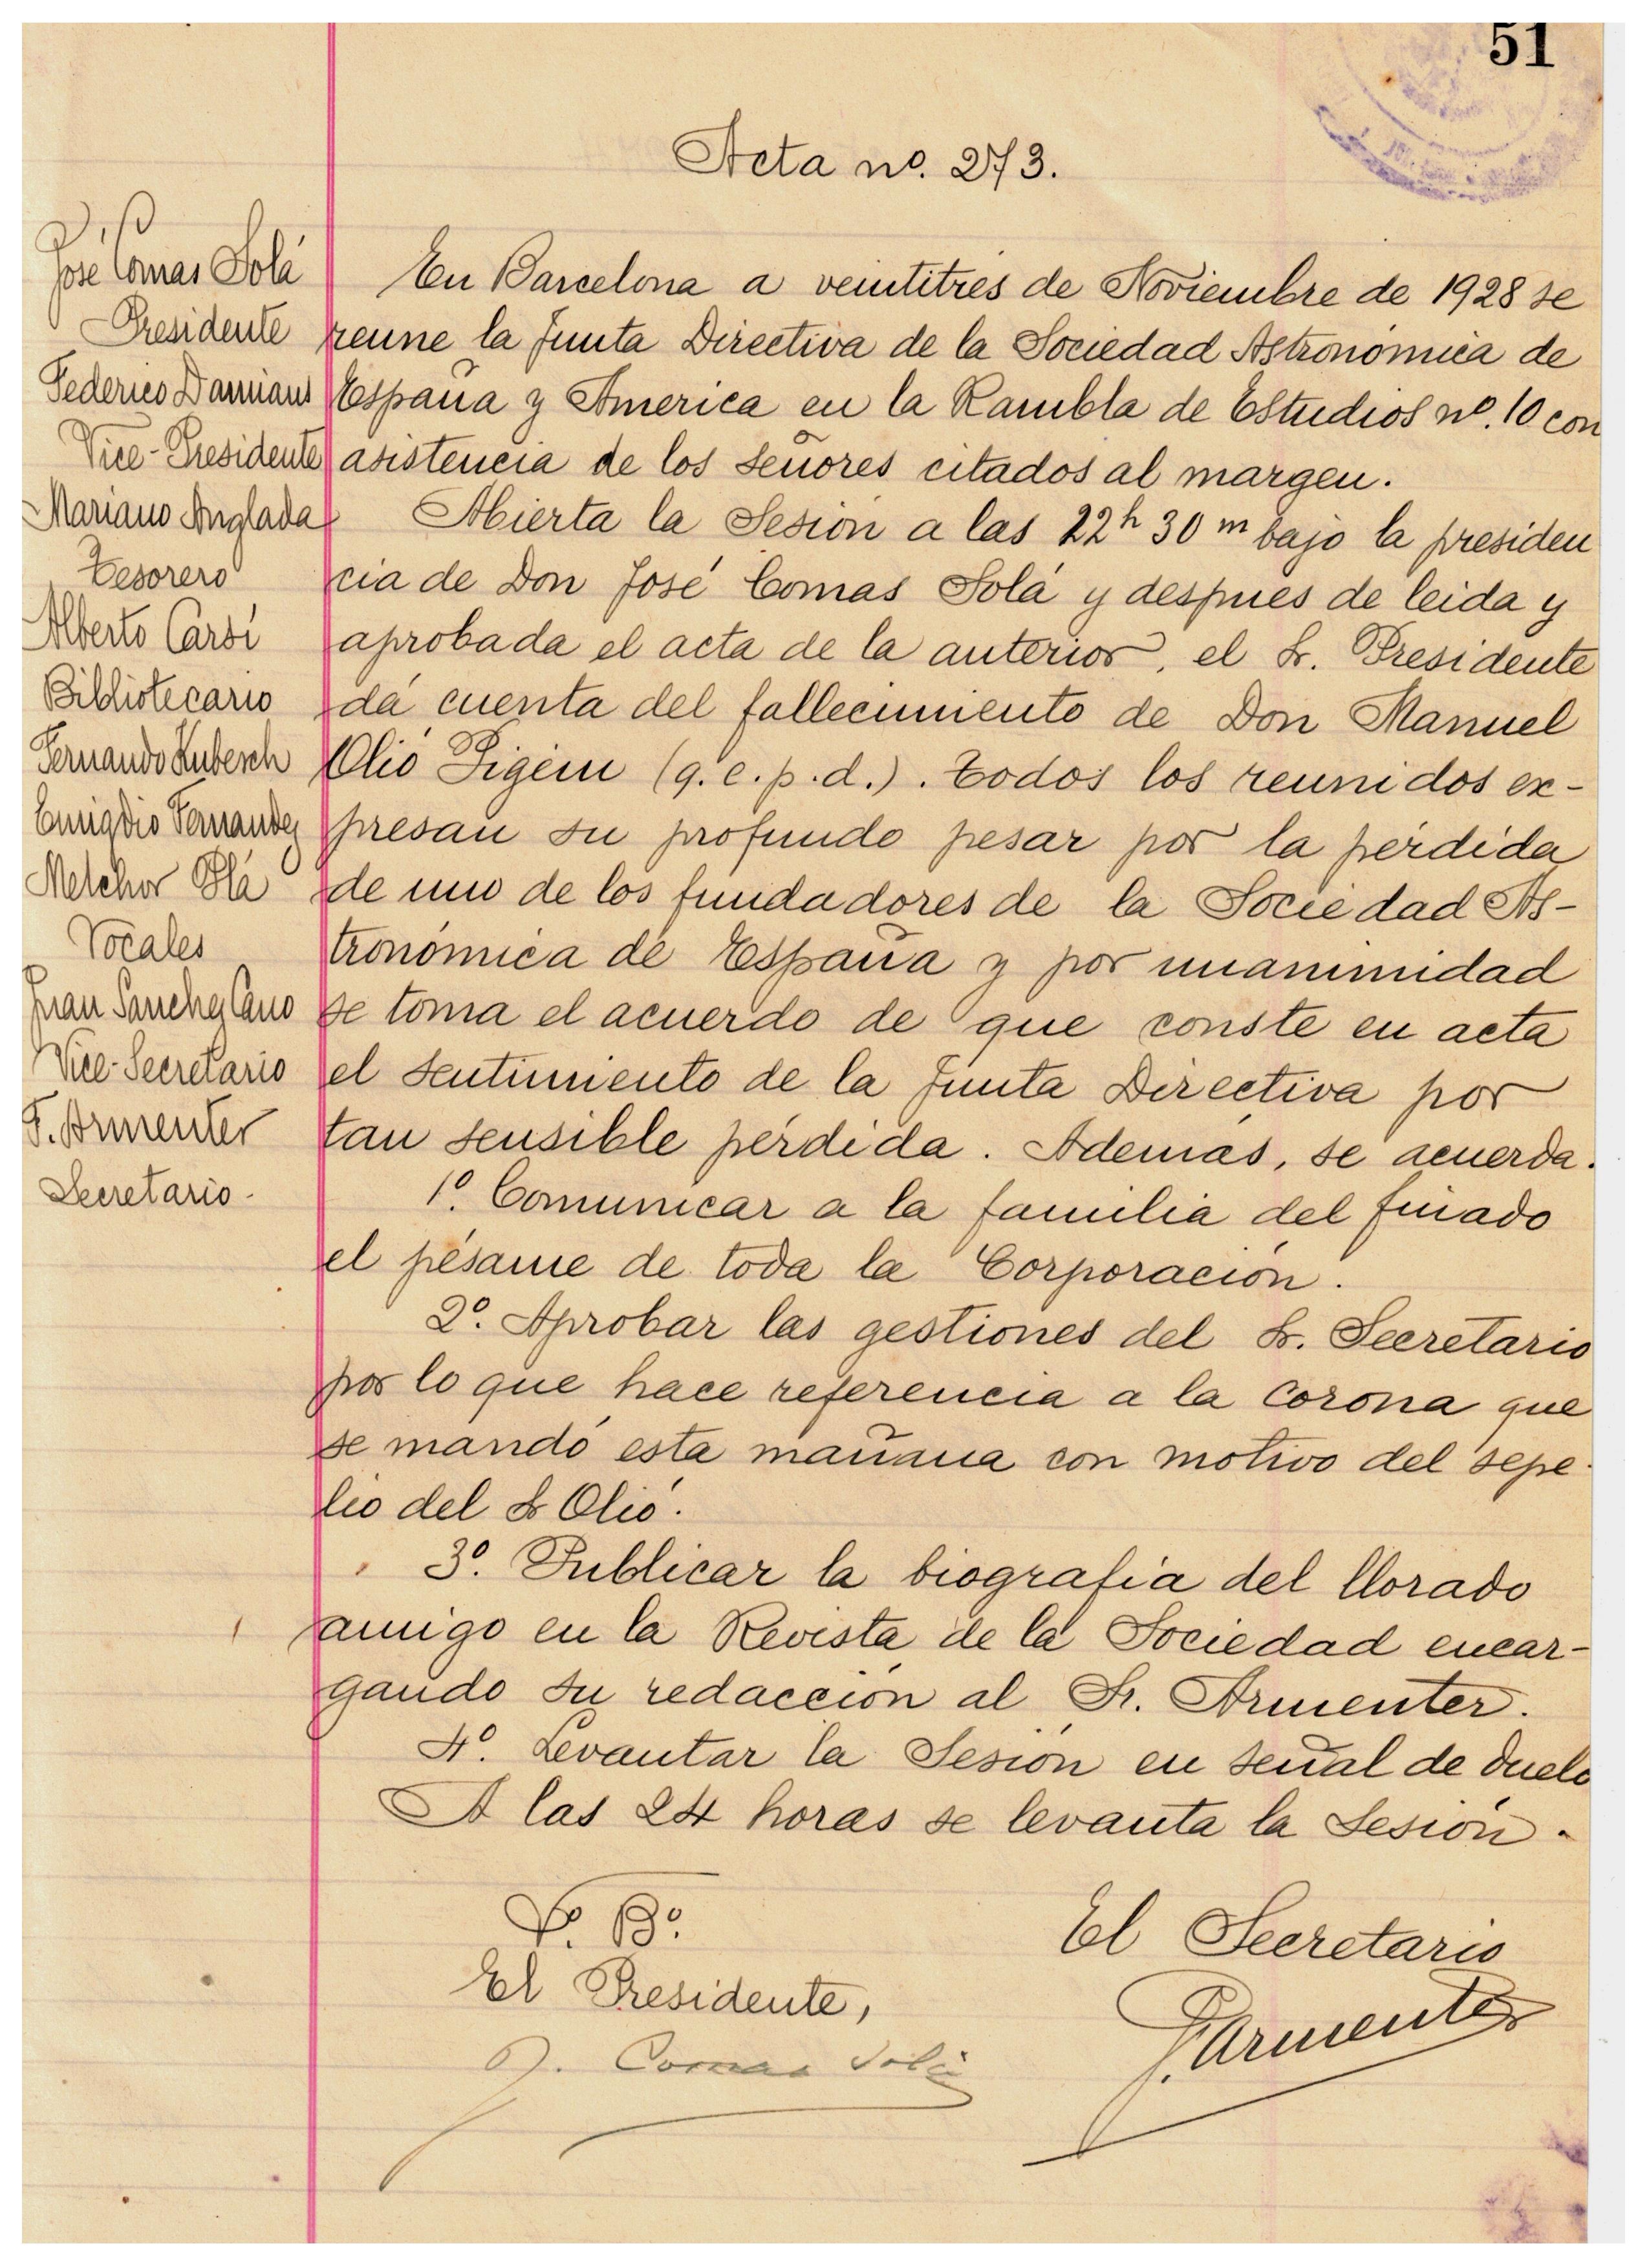 51
Acta nº. 273.
José Comas Solá
Presidente
Federico Damians
Vice-Presidente
Mariano Anglada
Tesorero
Alberto Carsí
Bibliotecario
Fernando Kubesch
Emigdio Fernandez
Melchor Plá
Vocales
Juan Sanchez Cano
Vice-Secretario
F. Armenter
Secretario.
En Barcelona a veintitres de Noviembre de 1928 se
reune la Junta Directiva de la Sociedad Astronómica de
España y America en la Rambla de Estudios nº. 10 con
asistencia de los señores citados al margen.
Abierta la Sesión a las 22h 30m bajo la presiden
cia de Don José Comas Solá y despues de leida y
aprobada el acta de la anterior, el Sr. Presidente
dá cuenta del fallecimiento de Don Manuel
Olió Sigein (q. e. p. d.). Todos los reunidos ex-
presan su profundo pesar por la pérdida
de uno de los fundadores de la Sociedad As-
tronómica de España y por unanimidad
se toma el acuerdo de que conste en acta
el sentimiento de la Junta Directiva por
tan sensible pérdida. Además, se acuerda.
1º. Comunicar a la familia del finado
el pésame de toda la Corporación.
2º. Aprobar las gestiones del Sr. Secretario
por lo que hace referencia a la corona que
se mandó esta mañana con motivo del sepe-
lio del Sr Olió.
3º. Publicar la biografía del llorado
amigo en la Revista de la Sociedad encar-
gando su redacción al Sr. Armenter.
4º. Levantar la Sesión en señal de duelo
A las 24 horas se levanta la Sesión.
Vº. Bº.
El Presidente,
J. Comas Solá
El Secretario
F. Armenter